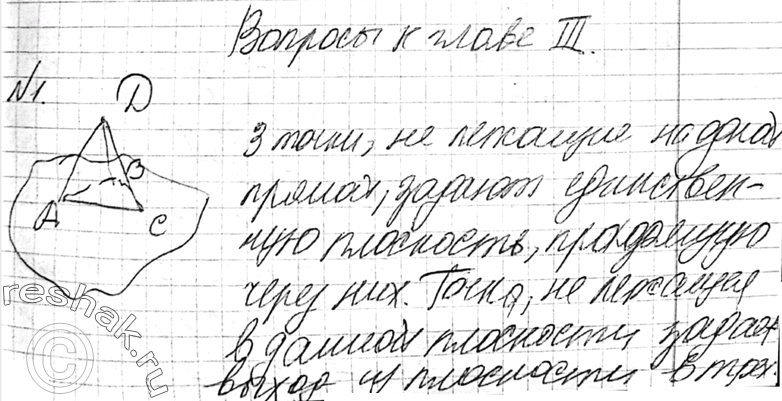 Вопросы к главе III.
№1.
D
B
A
C
3 точки, не лежащие на одной
прямой, задают единствен-
ную плоскость, проходящую
через них. Точка, не лежащая
в данной плоскости задает
выход из плоскости в трех.
© reshak.ru